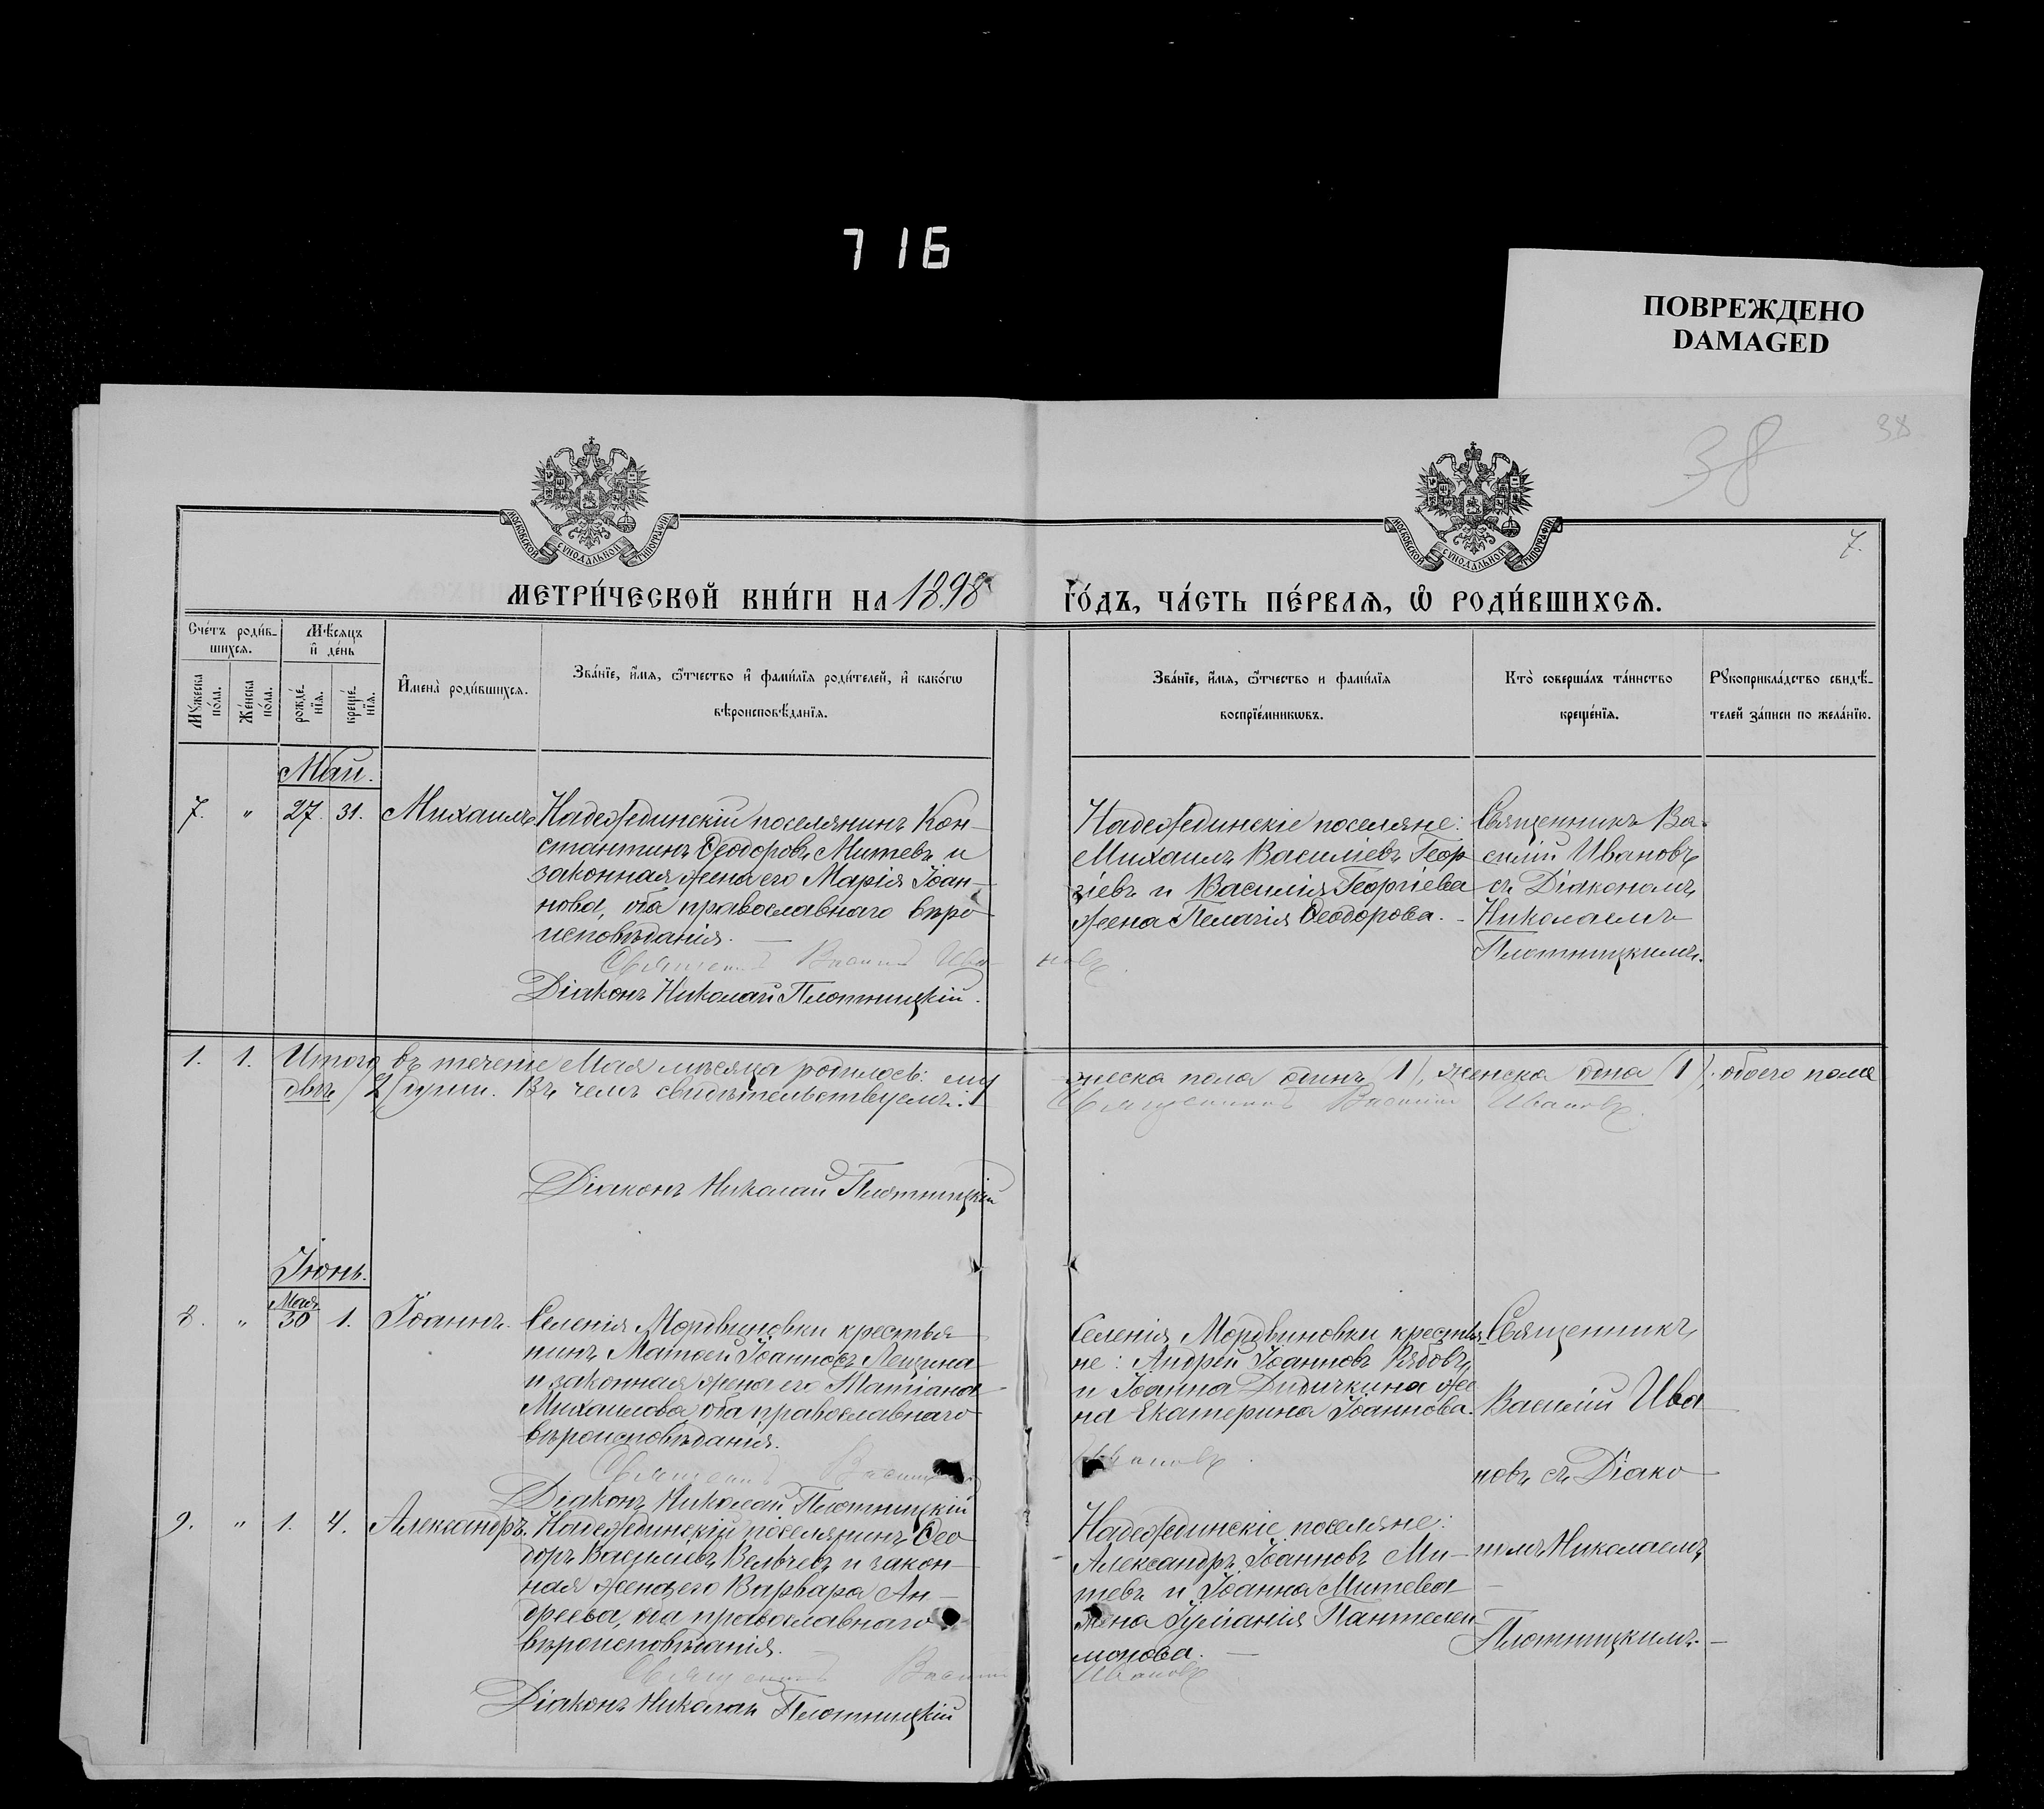 716
ПОВРЕЖДЕНО
DAMAGED
38
38
7.
МОСКОВСКОЙ СѴНОДАЛЬНОЙ ТИПОГРАФІИ
МОСКОВСКОЙ СѴНОДАЛЬНОЙ ТИПОГРАФІИ
МЕТРИ́ЧЕСКОЙ КНИ́ГИ НА 1898
ГО́ДЪ, ЧА́СТЬ ПЕ́РВАѦ, Ѡ҆ РОДИ́ВШИХСѦ.
Сче́тъ роди́в-
шихсѧ.
Мꙋ́жеска
по́ла.
Же́нска
по́ла.
Мѣ́сѧцъ
и҆ де́нь
рожде́-
нїѧ.
креще́-
нїѧ.
И҆мена̀ роди́вшихсѧ.
Зва́нїе, и҆́мѧ, ѻ҆́тчество и҆ фами́лїѧ роди́телей, и҆ како́гѡ
вѣроисповѣ́данїѧ.
Зва́нїе, и҆́мѧ, ѻ҆́тчество и фами́лїѧ
воспрїе́мникѡвъ.
Кто̀ соверша́лъ та́инство
креще́нїѧ.
Рꙋкоприкла́дство свидѣ́-
телей за́писи по жела́нїю.
Май.
7. " 27. 31. Михаилъ
Надеждинскій поселянинъ Кон-
стантинъ Ѳеодоровъ Митевъ и
законная жена его Марія Іоан-
нова, оба православнаго вѣро-
исповѣданія. —
Священникъ Василій Ива-
новъ.
Діаконъ Николай Плотницкій.
Надеждинскіе поселяне:
Михаилъ Василіевъ Геор-
гіевъ и Василія Георгіева
жена Пелагія Ѳеодорова. -
Священникъ Ва-
силій Ивановъ
съ Діакономъ
Николаемъ
Плотницкимъ.
1. 1. Итого въ теченіе Мая мѣсяца родилось: му
жеска пола одинъ (1), женска одна (1), обоего пола
двѣ (2) души. Въ чемъ свидѣтельствуемъ:
Священникъ Василій Ивановъ.
Діаконъ Николай Плотницкій
Іюнь.
8. " Мая 30 1. Іоаннъ.
Селенія Мордвиновки крестья-
нинъ Матѳей Іоанновъ Лещина
и законная жена его Татіана
Михаилова оба православнаго
вѣроисповѣданія.
Священникъ Василій
Ивановъ.
Діаконъ Николай Плотницкій
Селенія Мордвиновки крестья-
не: Андрей Іоанновъ Рябовъ
и Іоанна Дидичкина же
на Екатерина Іоаннова.
Священникъ
Василій Ива
новъ съ Діако
номъ Николаемъ
Плотницкимъ. —
9. " 1. 4. Александръ.
Надеждинскій поселянинъ Ѳео-
доръ Василіевъ Вельчевъ и закон-
ная жена его Варвара Ан-
дреева, оба православнаго
вѣроисповѣданія.
Священникъ Василій
Ивановъ
Діаконъ Николай Плотницкій
Надеждинскіе поселяне:
Александръ Іоанновъ Ми-
тевъ и Іоанна Митева
жена Іуліанія Пантелеи-
монова. —